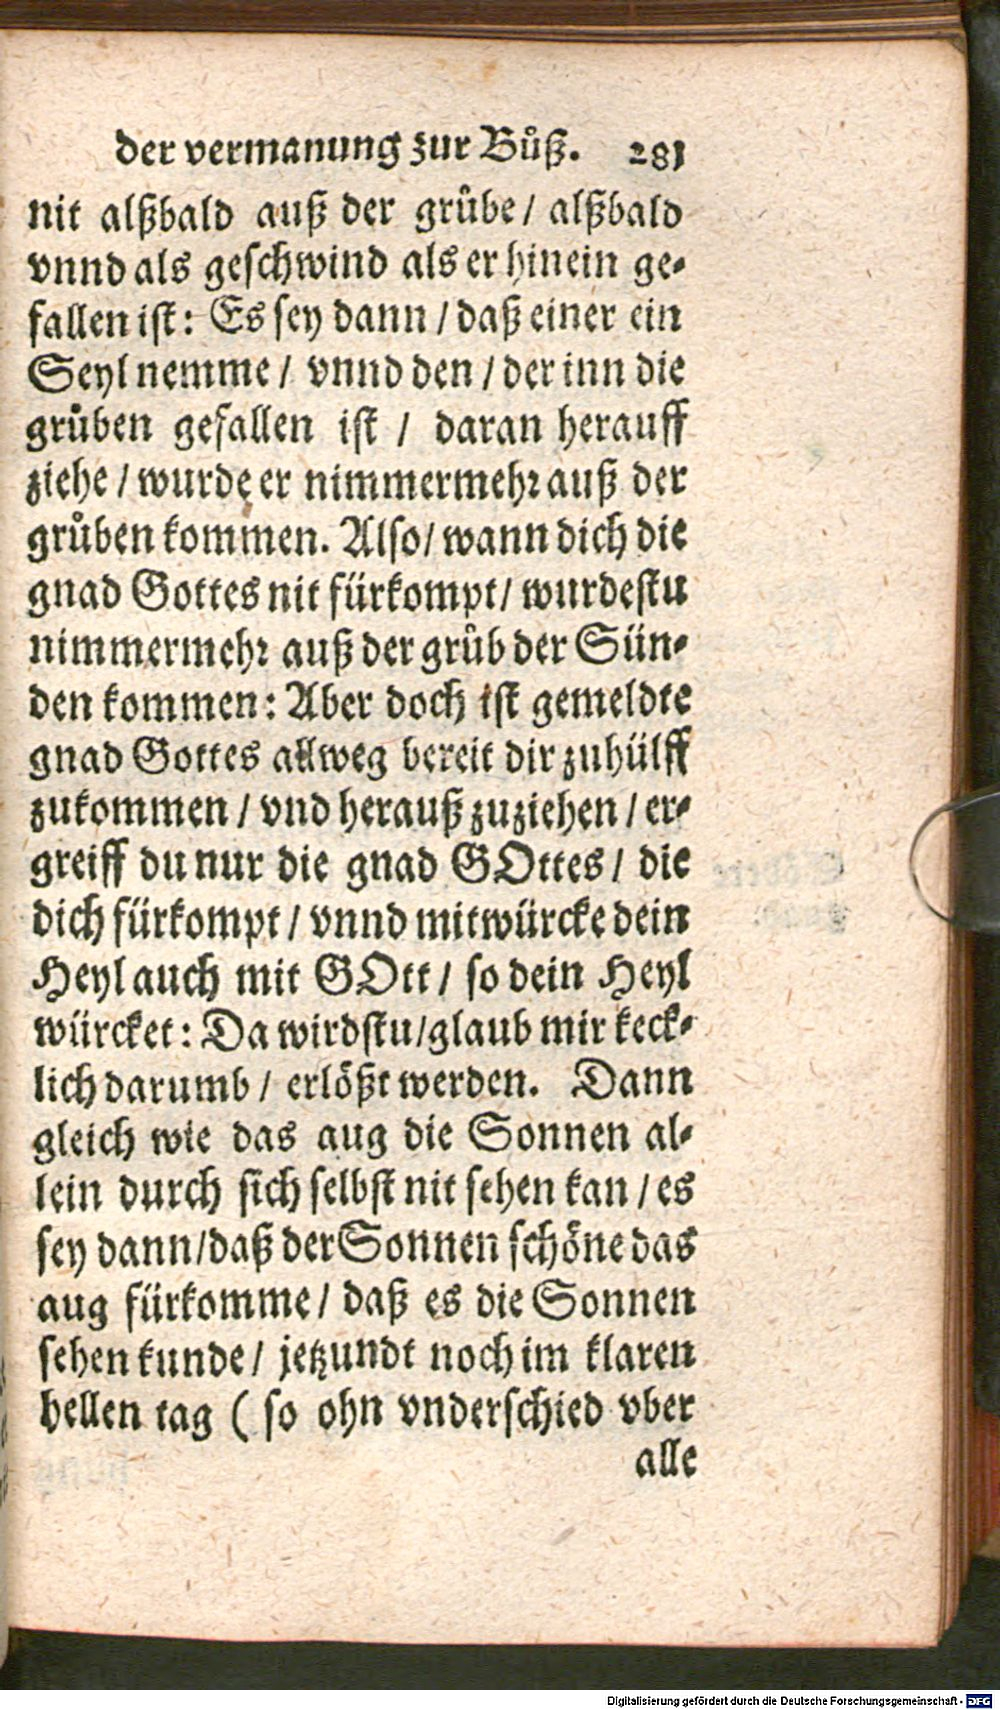 der vermanung zur Bůß. 281
nit alßbald auß der grůbe / alßbald
vnnd als geschwind als er hinein ge-
fallen ist: Es sey dann / daß einer ein
Seyl nemme / vnnd den / der inn die
grůben gefallen ist / daran herauff
ziehe / wurde er nimmermehr auß der
grůben kommen. Also / wann dich die
gnad Gottes nit fürkompt / wurdestu
nimmermehr auß der grůb der Sün-
den kommen: Aber doch ist gemeldte
gnad Gottes allweg bereit dir zuhülff
zukommen / vnd herauß zuziehen / er-
greiff du nur die gnad GOttes / die
dich fürkompt / vnnd mitwürcke dein
Heyl auch mit GOtt / so dein Heyl
würcket: Da wirdstu / glaub mir keck-
lich darumb / erlößt werden. Dann
gleich wie das aug die Sonnen al-
lein durch sich selbst nit sehen kan / es
sey dann / daß der Sonnen schöne das
aug fürkomme / daß es die Sonnen
sehen kunde / jetzundt noch im klaren
hellen tag ( so ohn vnderschied vber
alle
Digitalisierung gefördert durch die Deutsche Forschungsgemeinschaft - DFG